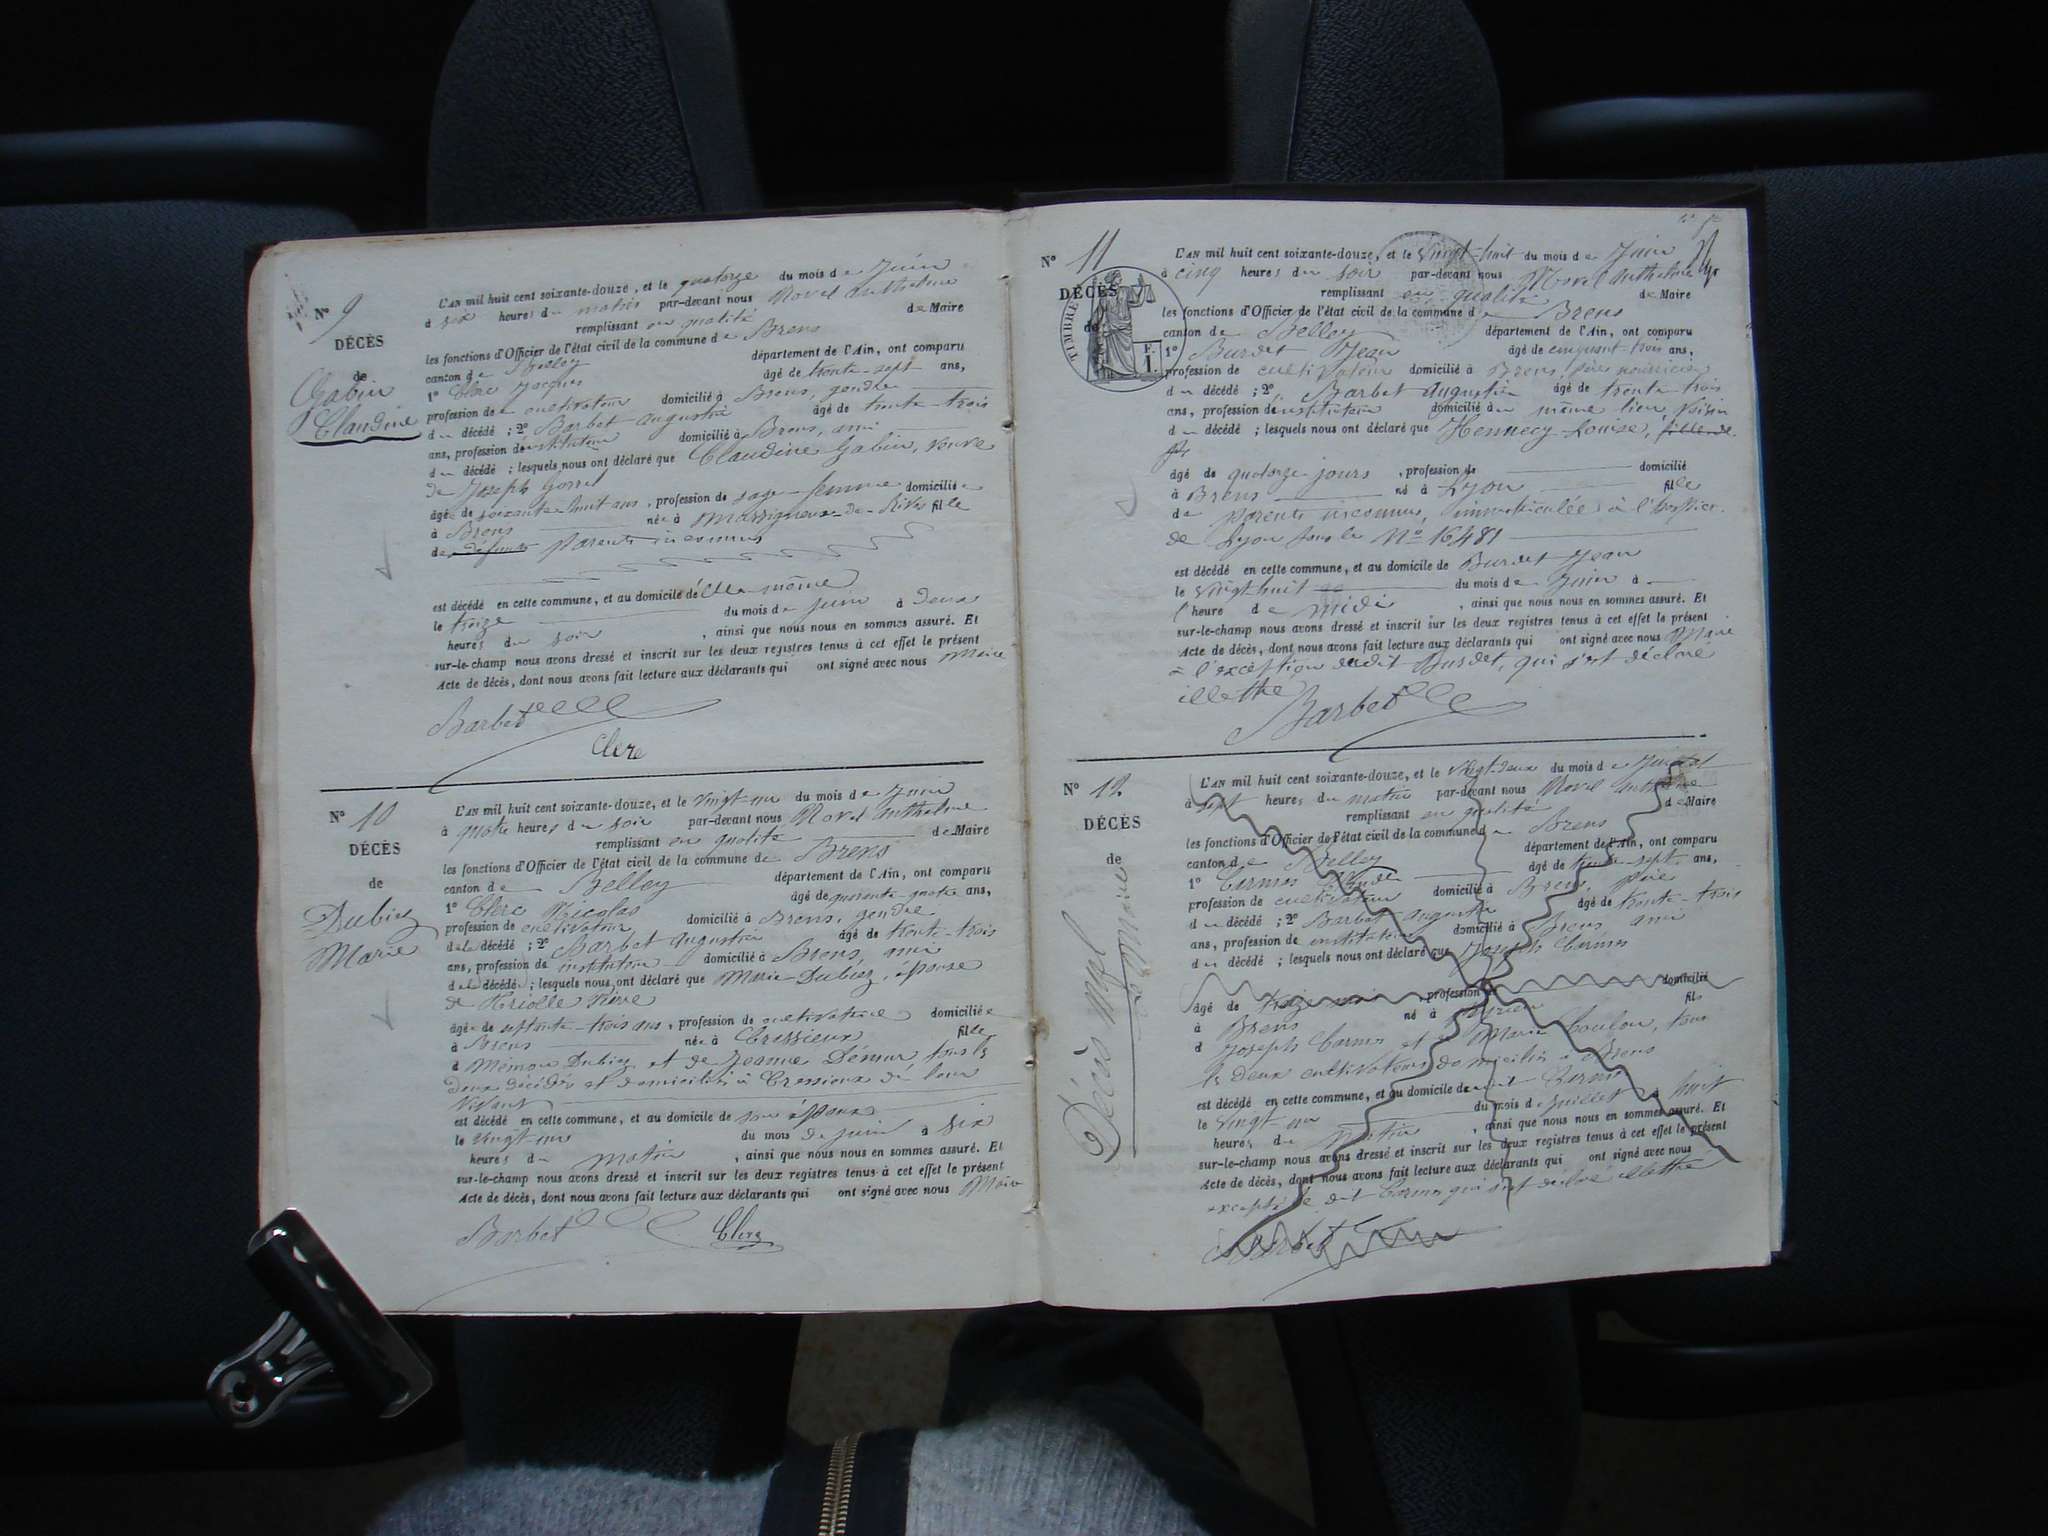 N° 9
DÉCÈS
de
Gabin
Claudine
L'AN mil huit cent soixante-douze, et le quatorze du mois de Juin
à six heures du matin par-devant nous Anthelme
remplissant en qualité de Maire
les fonctions d'Officier de l'état civil de la commune de Brens
canton de Belley département de l'Ain, ont comparu
1° Clerc Jacques âgé de trente-sept ans,
profession de cultivateur domicilié à Brens, gendre
du décédé ; 2° Barbet Augustin âgé de trente-trois
ans, profession d'instituteur domicilié à Brens, ami
du décédé ; lesquels nous ont déclaré que Claudine Gabin, veuve
de Joseph
âgée de soixante-huit ans, profession de sage-femme domiciliée
à Brens née à Massignieux-de-Rives fille
de défunts parents inconnus
est décédé en cette commune, et au domicile d'elle-même
le treize du mois de juin à deux
heures du soir, ainsi que nous nous en sommes assuré. Et
sur-le-champ nous avons dressé et inscrit sur les deux registres tenus à cet effet le présent
Acte de décès, dont nous avons fait lecture aux déclarants qui ont signé avec nous Maire
Barbet
Clerc
N° 10
DÉCÈS
de
Dubiez
Marie
L'AN mil huit cent soixante-douze, et le vingt-un du mois de Juin
à quatre heures du soir par-devant nous Anthelme
remplissant en qualité de Maire
les fonctions d'Officier de l'état civil de la commune de Brens
canton de Belley département de l'Ain, ont comparu
1° Clerc Nicolas âgé de quarante-quatre ans,
profession de cultivateur domicilié à Brens, gendre
de la décédé ; 2° Barbet Augustin âgé de trente-trois
ans, profession de instituteur domicilié à Brens, ami
de la décédé ; lesquels nous ont déclaré que Marie Dubiez, épouse
de
âgée de septante-trois ans, profession de cultivatrice domiciliée
à Brens née à Cressieux fille
d et de Jeanne tous les
deux décédés et domiciliés à Cressieux de leur
vivant
est décédé en cette commune, et au domicile de son époux
le vingt-un du mois de juin à six
heures du matin, ainsi que nous nous en sommes assuré. Et
sur-le-champ nous avons dressé et inscrit sur les deux registres tenus à cet effet le présent
Acte de décès, dont nous avons fait lecture aux déclarants qui ont signé avec nous Maire
Barbet Clerc
N° 11
DÉCÈS
de
TIMBRE
F.
1.
L'AN mil huit cent soixante-douze, et le vingt-huit du mois de Juin
à cinq heures du soir par-devant nous Anthelme
remplissant en qualité de Maire
les fonctions d'Officier de l'état civil de la commune de Brens
canton de Belley département de l'Ain, ont comparu
1° Burdet Jean âgé de cinquant-trois ans,
profession de cultivateur domicilié à Brens, père nourricier
du décédé ; 2° Barbet Augustin âgé de trente-trois
ans, profession d'instituteur domicilié au même lieu, voisin
du décédé ; lesquels nous ont déclaré que Hennecy Louise, fille de
âgé de quatorze jours, profession de domicilié
à Brens né à Lyon fille
de parents inconnus, immatriculée à l'hospice
de Lyon sous le N° 16481
est décédé en cette commune, et au domicile de Burdet Jean
le vingt-huit du mois de Juin à
l'heure de midi, ainsi que nous nous en sommes assuré. Et
sur-le-champ nous avons dressé et inscrit sur les deux registres tenus à cet effet le présent
Acte de décès, dont nous avons fait lecture aux déclarants qui ont signé avec nous Maire
à l'exception dudit Burdet, qui s'est déclaré
illettré
Barbet
N° 12
DÉCÈS
de
L'AN mil huit cent soixante-douze, et le vingt-deux du mois de Juillet
à sept heures du matin par-devant nous Anthelme
remplissant en qualité de Maire
les fonctions d'Officier de l'état civil de la commune de Brens
canton de Belley département de l'Ain, ont comparu
1° âgé de trente-sept ans,
profession de cultivateur domicilié à Brens, père
du décédé ; 2° Barbet Augustin âgé de trente-trois
ans, profession de instituteur domicilié à Brens, ami
du décédé ; lesquels nous ont déclaré que Joseph
âgé de treize, profession de domicilié
à Brens né à fils
d Joseph et de Marie Coulon, tous
les deux cultivateurs domiciliés à Brens
est décédé en cette commune, et au domicile
le vingt-un du mois de Juillet à huit
heures du matin, ainsi que nous nous en sommes assuré. Et
sur-le-champ nous avons dressé et inscrit sur les deux registres tenus à cet effet le présent
Acte de décès, dont nous avons fait lecture aux déclarants qui ont signé avec nous
excepté le dit qui s'est déclaré illettré
Barbet